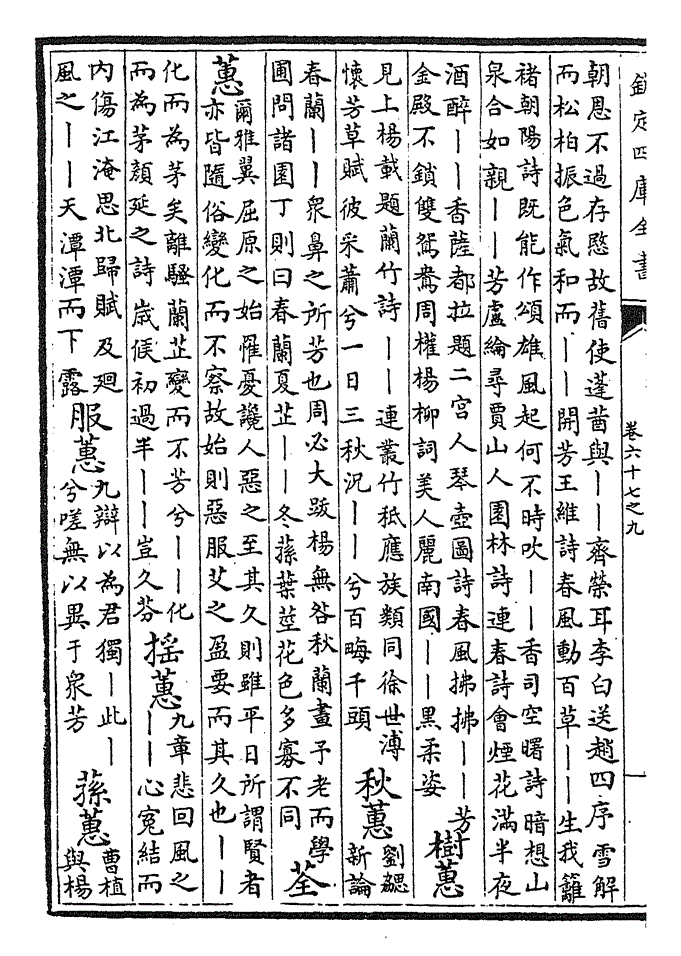 欽定四庫全書
卷六十七之九
朝恩不過存愍故舊使蓬蒿與——齊榮耳李白送趙四序雪解
而松柏振色氣和而——開芳王維詩春風動百草——生我籬
褚朝陽詩既能作頌雄風起何不時吹——香司空曙詩暗想山
泉合如親——芳盧綸尋賈山人園林詩連春詩會煙花滿半夜
酒醉——香薩都拉題二宮人琴壺圖詩春風拂拂——芳
金殿不鎖雙鴛鴦周權楊柳詞美人麗南國——黑柔姿
樹蕙
見上楊載題蘭竹詩——連叢竹秪應族類同徐世溥
懷芳草賦彼采蕭兮一日三秋況——兮百畮千頭
秋蕙
劉勰
新論
春蘭——衆鼻之所芳也周必大跋楊無咎秋蘭畫予老而學
圃問諸園丁則曰春蘭夏芷——冬蓀葉莖花色多寡不同
荃
蕙
爾雅翼屈原之始罹憂讒人惡之至其久則雖平日所謂賢者
亦皆隨俗變化而不察故始則惡服艾之盈要而其久也——
化而為茅矣離騷蘭芷變而不芳兮——化
而為茅顏延之詩歲候初過半——豈久芬
揺蕙
九章悲回風之
——心寃結而
內傷江淹思北歸賦及廻
風之——天潭潭而下露
服蕙
九辯以為君獨—此—
兮嗟無以異于衆芳
蓀蕙
曹植
與楊